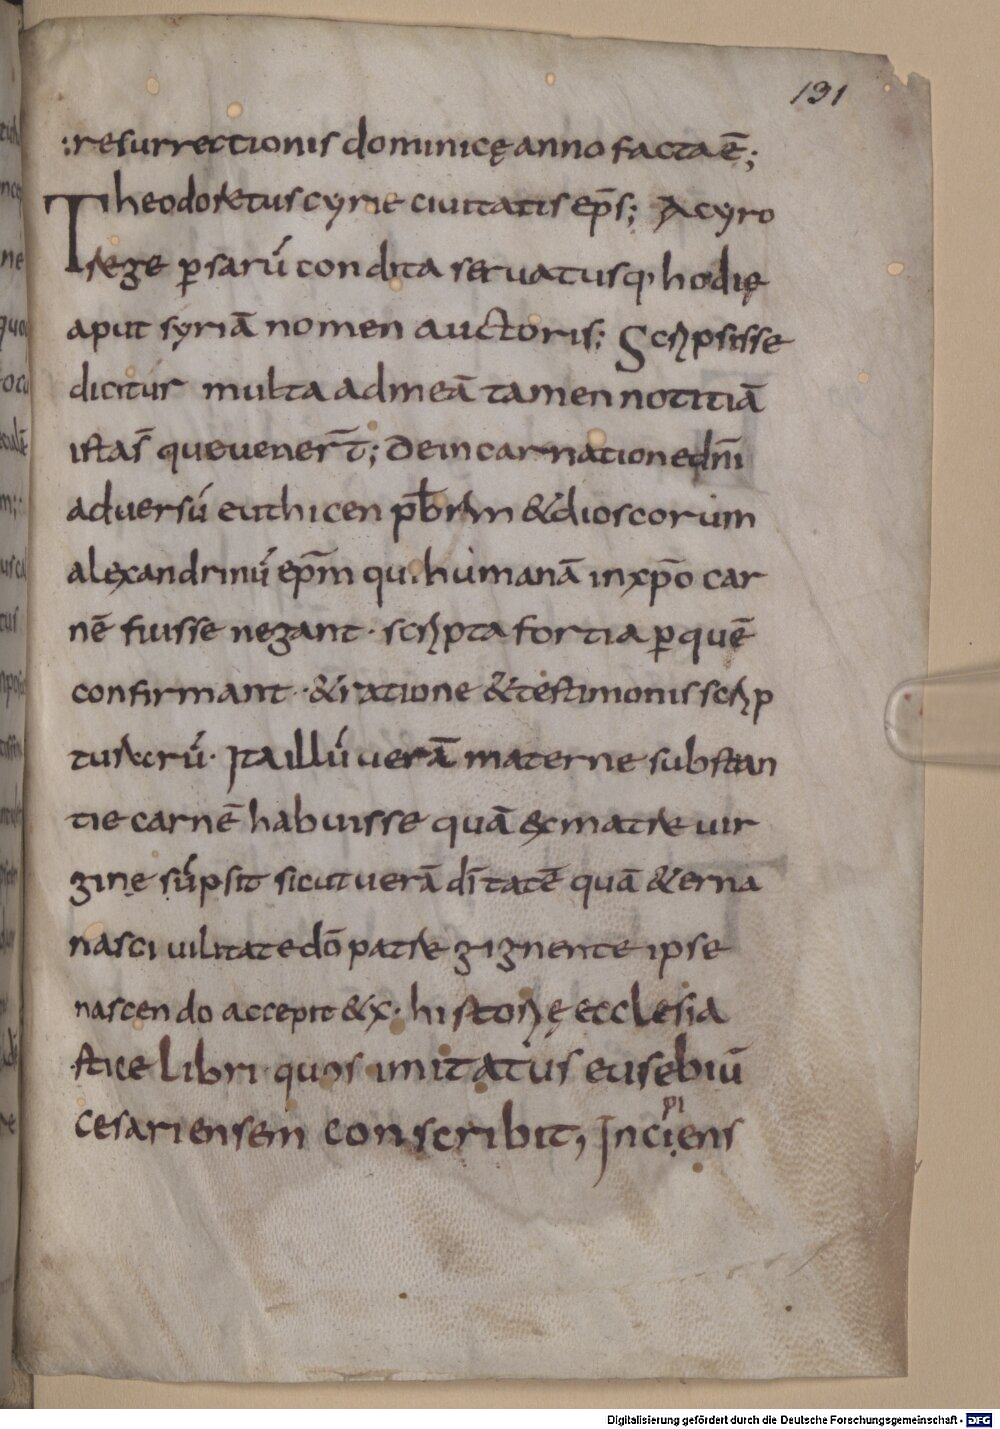 191
:resurrectionis dominicę anno facta ē;
Theodoretus cyrie ciuitatis ep̄s; A cyro
rege ꝑsarū condita seruatusq; hodię
aput syriā nomen auctoris; Scripsisse
dicitur multa ad meā tamen notitiā
istas̄ que uener̄t; De incarnatione dn̄i
aduersū euthicen p̄brm & dioscorum
alexandrinū ep̄m qui humanā in xp̄o car
nē fuisse negant · scripta fortia ꝑ quē
confirmant · & ratione & testimoniis scrip
turarū · Ita illū uerā materne substan
tie carnē habuisse quā ex matre uir
gine sūpsit sicut uerā dītatē quā & erna
nasci uilitate dō patre gignente ipse
nascendo accepit & x · historię ecclesia
stice libri quos imitatus eusebiū
cesariensem conscribit, Incipiens
Digitalisierung gefördert durch die Deutsche Forschungsgemeinschaft - DFG